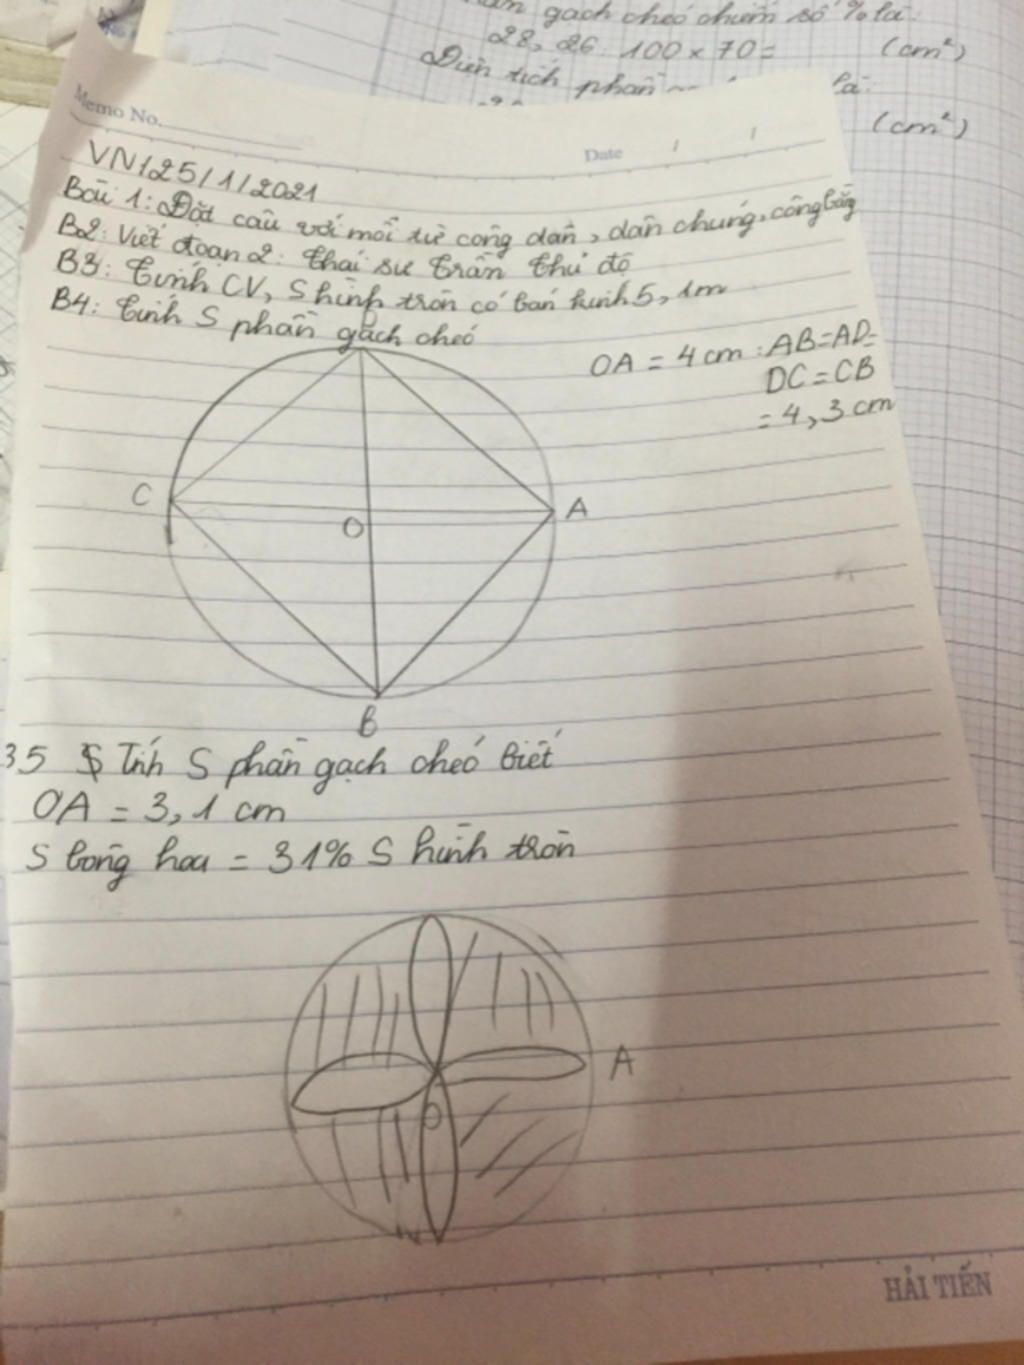 gạch chéo chiếm số % là:
28,26 : 100 x 70 = (cm²)
Diện tích phần là:
(cm²)
Memo No.
Date / /
VN 25/1/2021
Bài 1: Đặt câu với mỗi từ công dân, dân chúng, công bằng
B2: Viết đoạn 2: Thái sư Trần Thủ độ
B3: Tính CV, S hình tròn có bán kính 5,1m
B4: Tính S phần gạch chéo
OA = 4 cm : AB=AD=
DC=CB
= 4,3 cm
C
A
O
B
35 S Tính S phần gạch chéo biết
OA = 3,1 cm
S bông hoa = 31% S hình tròn
A
O
HẢI TIẾN